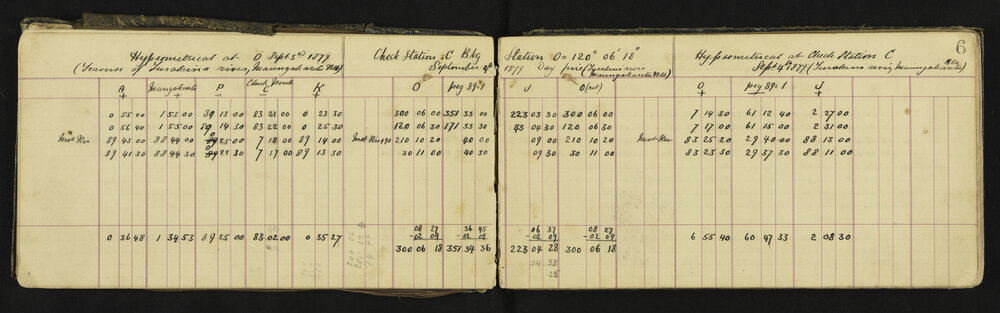 Hypsometrical at O Sept 3rd 1879
(Traverse of Turakina river, Maungakaretu Blk)
Check Point
A Maungakaretu P C K
+ + + + +
0 55 00 1 53 00 89 15 00 83 21 00 0 23 30
0 56 40 1 55 00 89 14 30 83 22 00 0 25 30
Inst Rev 89 43 00 88 44 00 25 00 7 18 00 89 14 00
89 41 30 88 44 30 22 30 7 17 00 89 13 30
0 36 48 1 34 53 89 25 00 83 02 00 0 35 27
Check Station C Bdg
September 4th
O peg 89.1
300 06 00 351 33 00
120 06 30 171 33 30
Inst Rev 190 210 10 20 40 00
30 11 00 40 30
08 27 36 45
-02 09 -02 09
300 06 18 351 34 36
Station O = 120° 06' 18"
1879 Day fine (Turakina river Maungakaretu Blk)
J O (ret)
223 03 30 300 06 00
43 04 30 120 06 30
09 00 210 10 20
09 30 30 11 00
06 37 08 27
-02 09 -02 09
223 04 28 300 06 18
6
Hypsometrical at Check Station C
Sept 4th 1879 (Turakina river, Maungakaretu) Blk
O peg 89.1 J
+ + +
7 14 30 61 12 40 2 27 00
7 17 00 61 15 00 2 31 00
Inst Rev 83 25 20 29 40 00 88 13 00
83 23 30 29 37 30 88 11 00
6 55 40 60 47 33 2 08 30